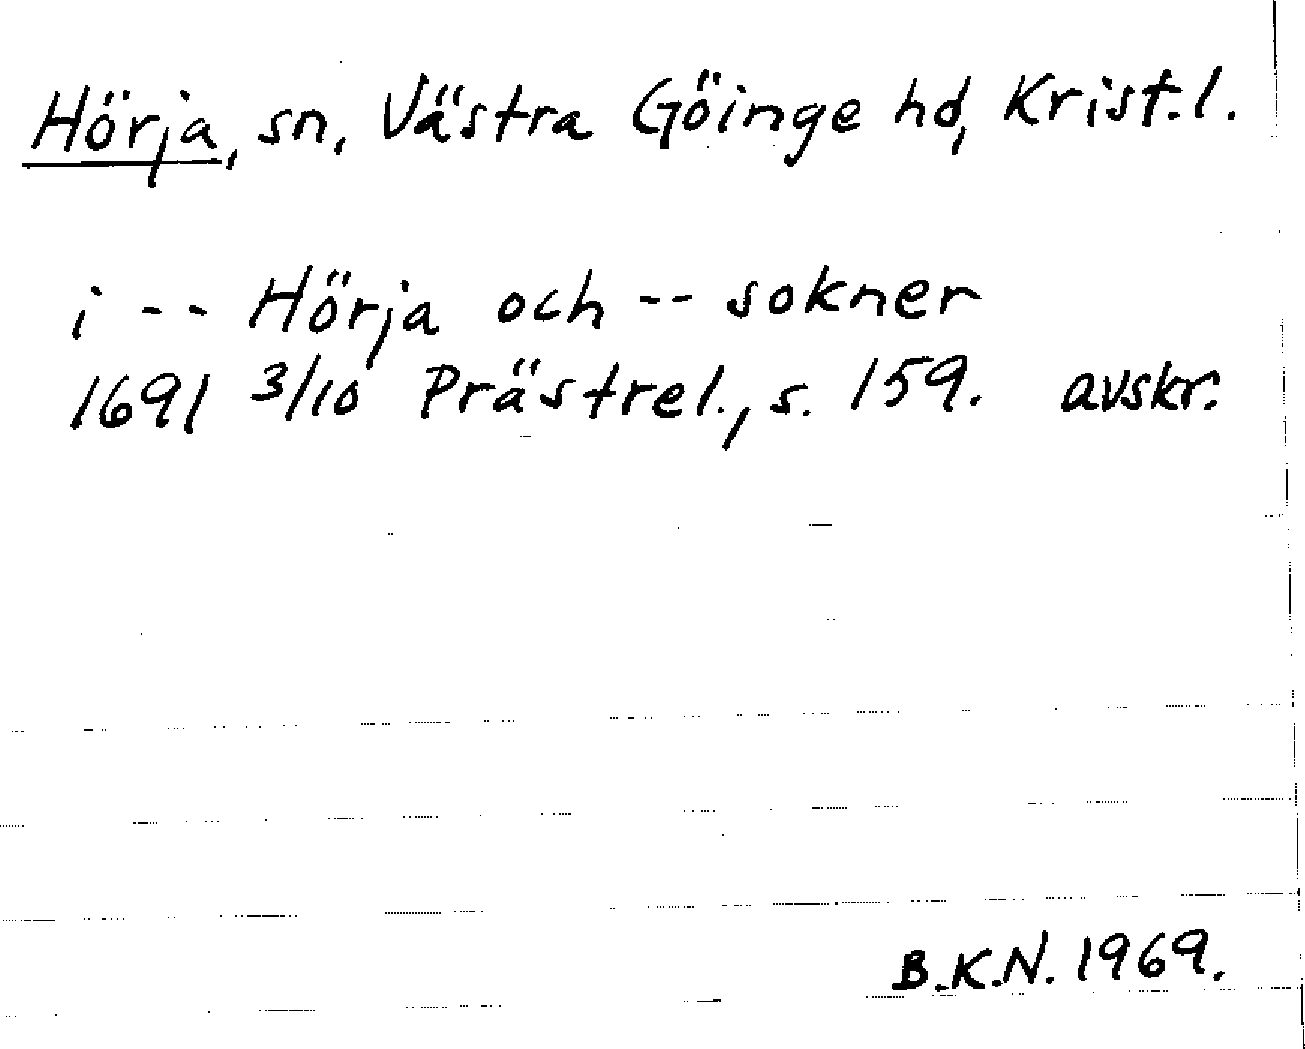 Hörja, sn, Västra Göinge hd, Krist.l.
i -- Hörja och -- sokner
1691 3/10 Prästrel., s. 159. avskr.
B.K.N. 1969.